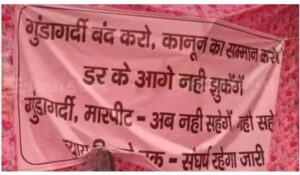 गुंडागर्दी बंद करो, कानून का सम्मान करो
डर के आगे नही झुकेंगें
गुंडागर्दी, मारपीट - अब नही सहेगें, सहे
तक - संघर्ष रहेगा जारी